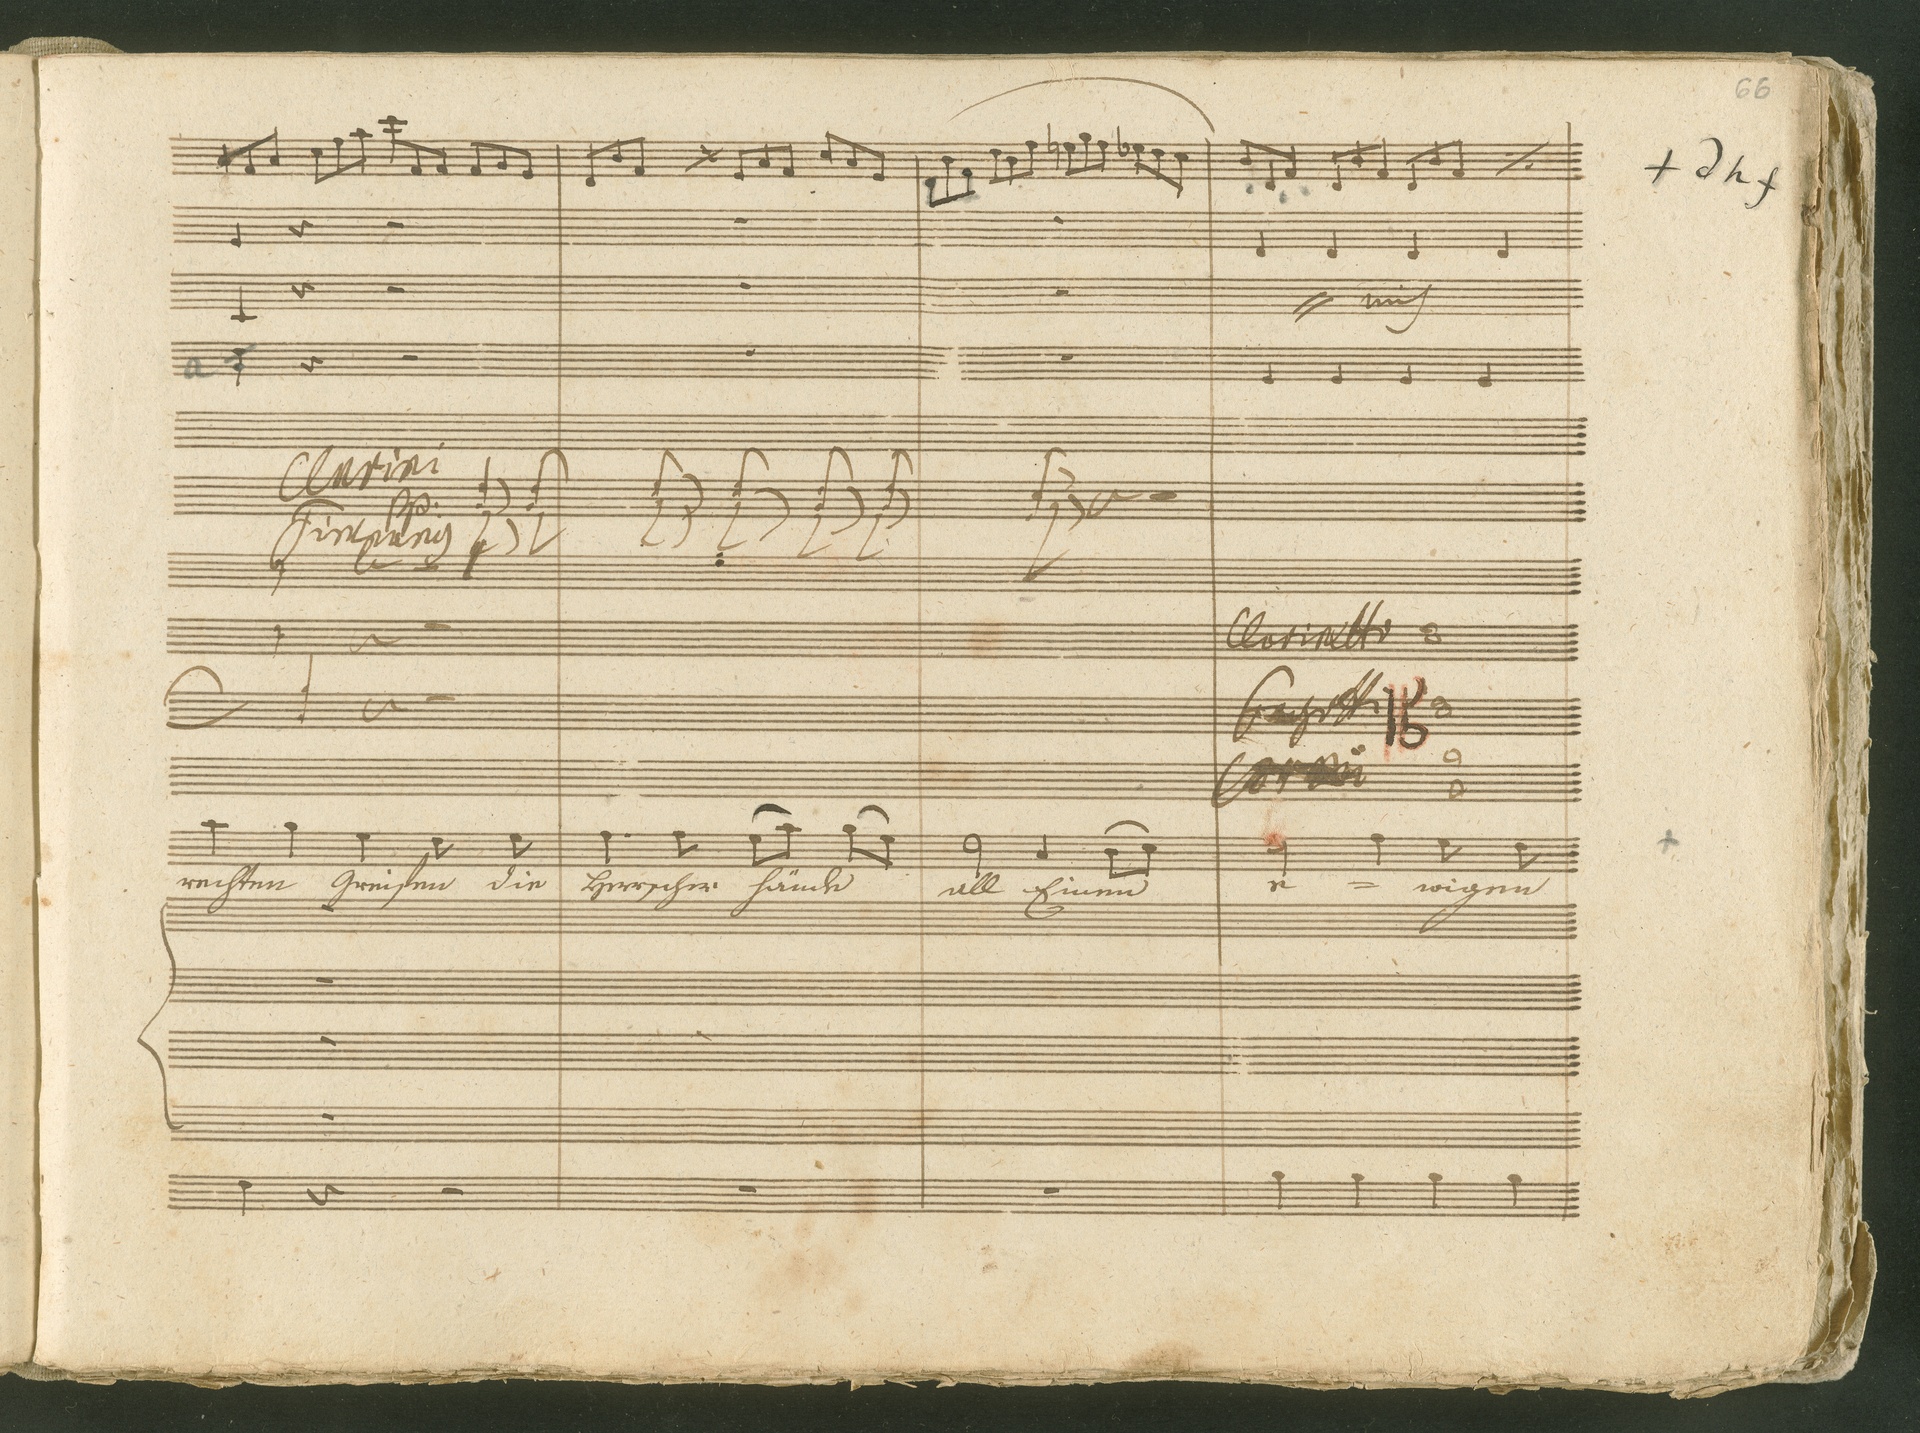 66
+ d h f
unis
a
Clarini
pp:
Timpany
Clarinetto
Fagotti
Corni
rechten Greisen die Herrscher hände all Einen e = wigen